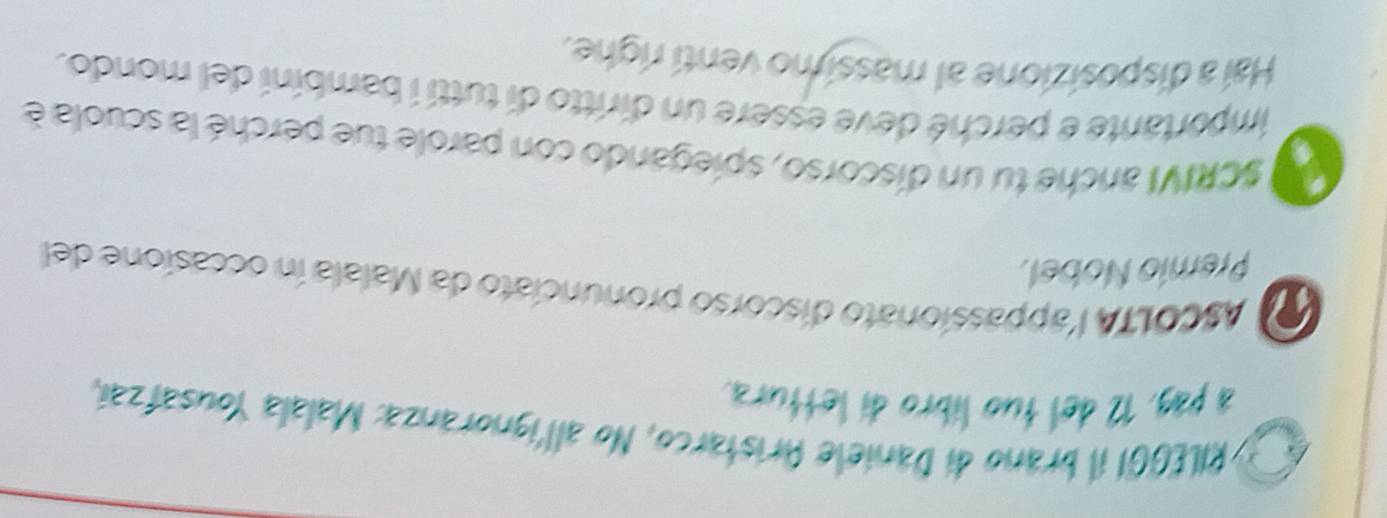 RILEGGI il brano di Daniele Aristarco, No all'ignoranza: Malala Yousafzai,
a pag. 12 del tuo libro di lettura.
ASCOLTA l'appassionato discorso pronunciato da Malala in occasione del
Premio Nobel.
SCRIVI anche tu un discorso, spiegando con parole tue perché la scuola è
importante e perché deve essere un diritto di tutti i bambini del mondo.
Hai a disposizione al massimo venti righe.